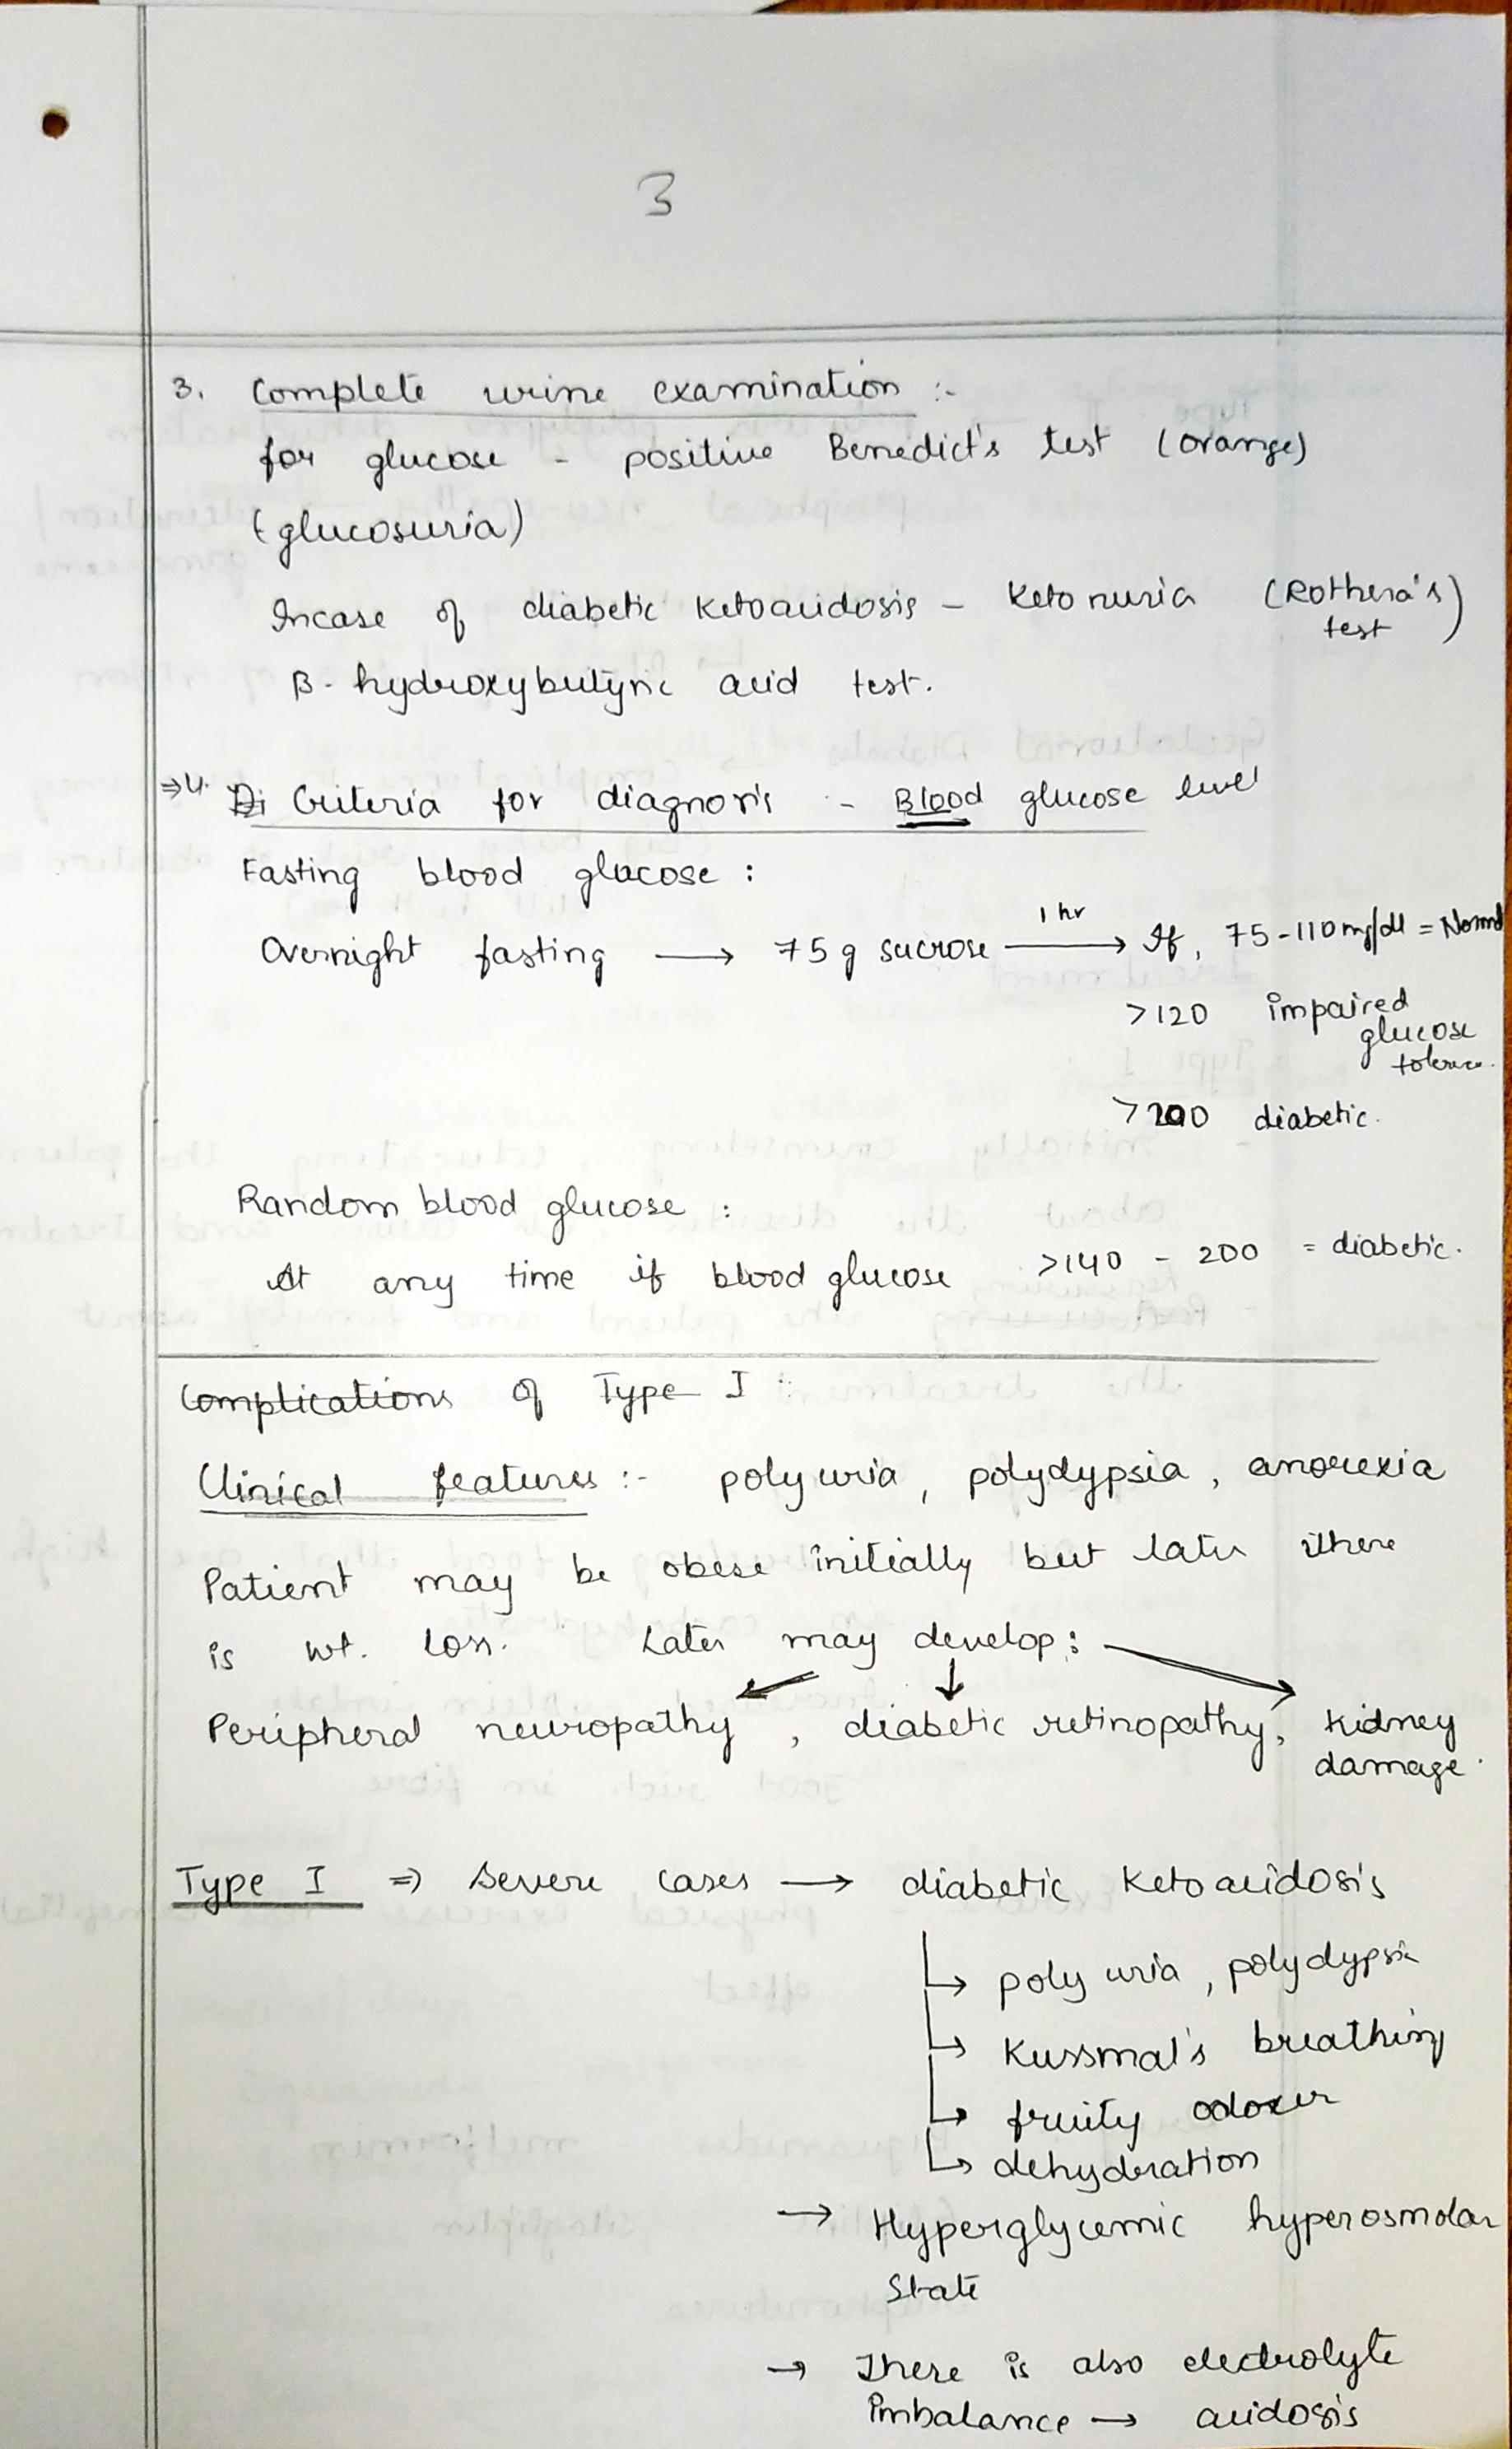 3
3. Complete urine examination :-
for glucose - positive Benedict's test (orange)
(glucosuria)
Incase of diabetic ketoacidosis - ketonuria (Rothera's test)
β-hydroxybutyric acid test.
⇒ 4. Di Criteria for diagnosis - Blood glucose level
Fasting blood glucose :
Overnight fasting → 75 g sucrose 1 hr → If, 75-110 mg/dl = Normal
>120 impaired glucose tolerance.
>200 diabetic.
Random blood glucose :
At any time if blood glucose >140 - 200 = diabetic.
Complications of Type I :
Clinical features :- polyuria, polydypsia, anorexia
Patient may be obese initially but later there
is wt. loss. Later may develop :
Peripheral neuropathy, diabetic retinopathy, kidney damage.
Type I ⇒ Severe cases → diabetic ketoacidosis
↳ polyuria, polydypsia
↳ Kussmal's breathing
↳ fruity odour
↳ dehydration
→ Hyperglycemic hyperosmolar
State
→ There is also electrolyte
imbalance → acidosis